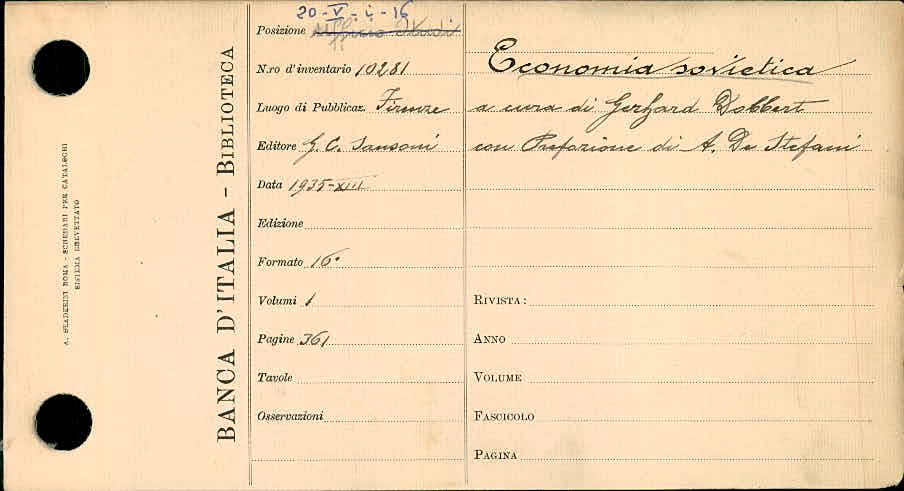 20-V-i-16
Posizione Ufficio Studi
N.ro d'inventario 10281
Luogo di Pubblicaz. Firenze
Editore G. C. Sansoni
Data 1935-XIII
Edizione
Formato 16°
Volumi 1
Pagine 361
Tavole
Osservazioni
Economia sovietica
a cura di Gerhard Dobbert
con Prefazione di A. De Stefani
RIVISTA:
ANNO
VOLUME
FASCICOLO
PAGINA
BANCA D'ITALIA - BIBLIOTECA
A. STADERINI ROMA - SCHEDARI PER CATALOGHI
SISTEMA BREVETTATO